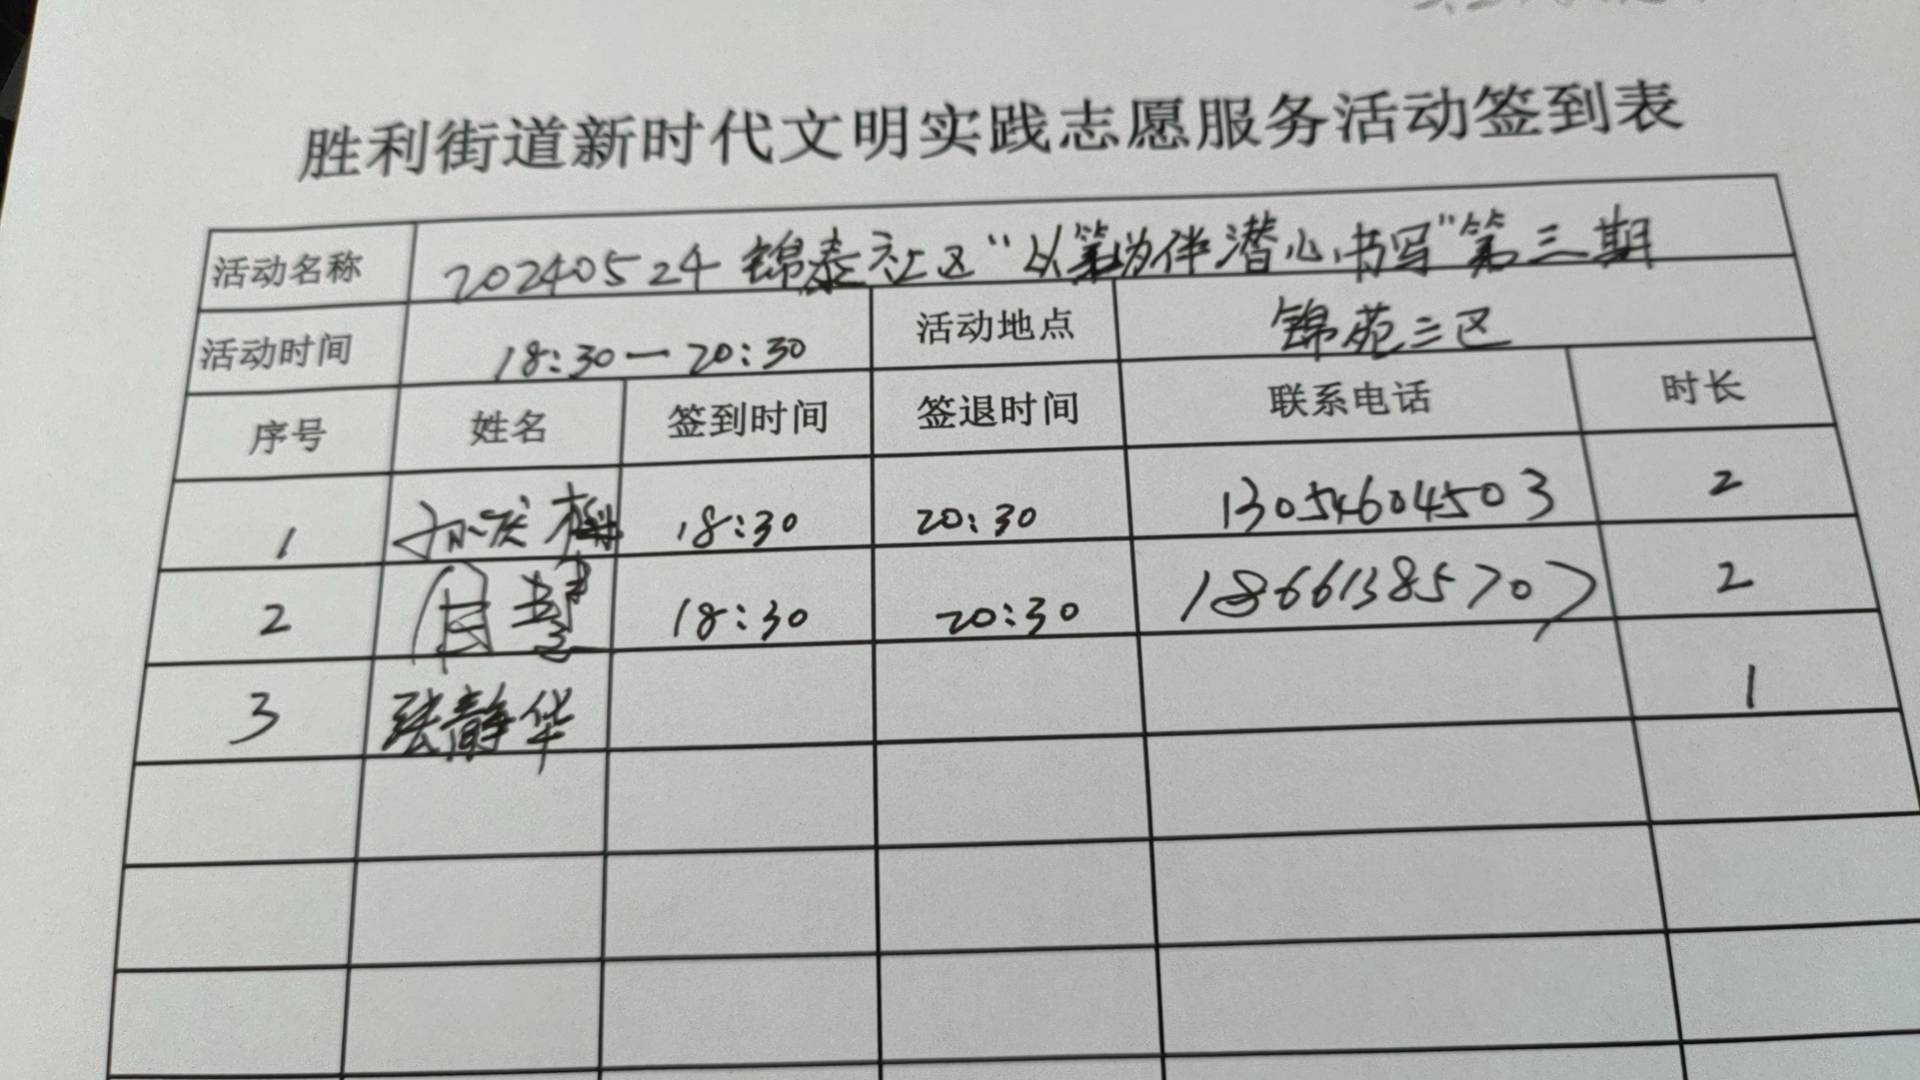 胜利街道新时代文明实践志愿服务活动签到表
活动名称 20240524锦泰社区“以笔为伴潜心书写”第三期
活动时间 18:30—20:30 活动地点 锦苑三区
序号 姓名 签到时间 签退时间 联系电话 时长
1 18:30 20:30 13054604503 2
2 周慧 18:30 20:30 18661385707 2
3 张静华 1